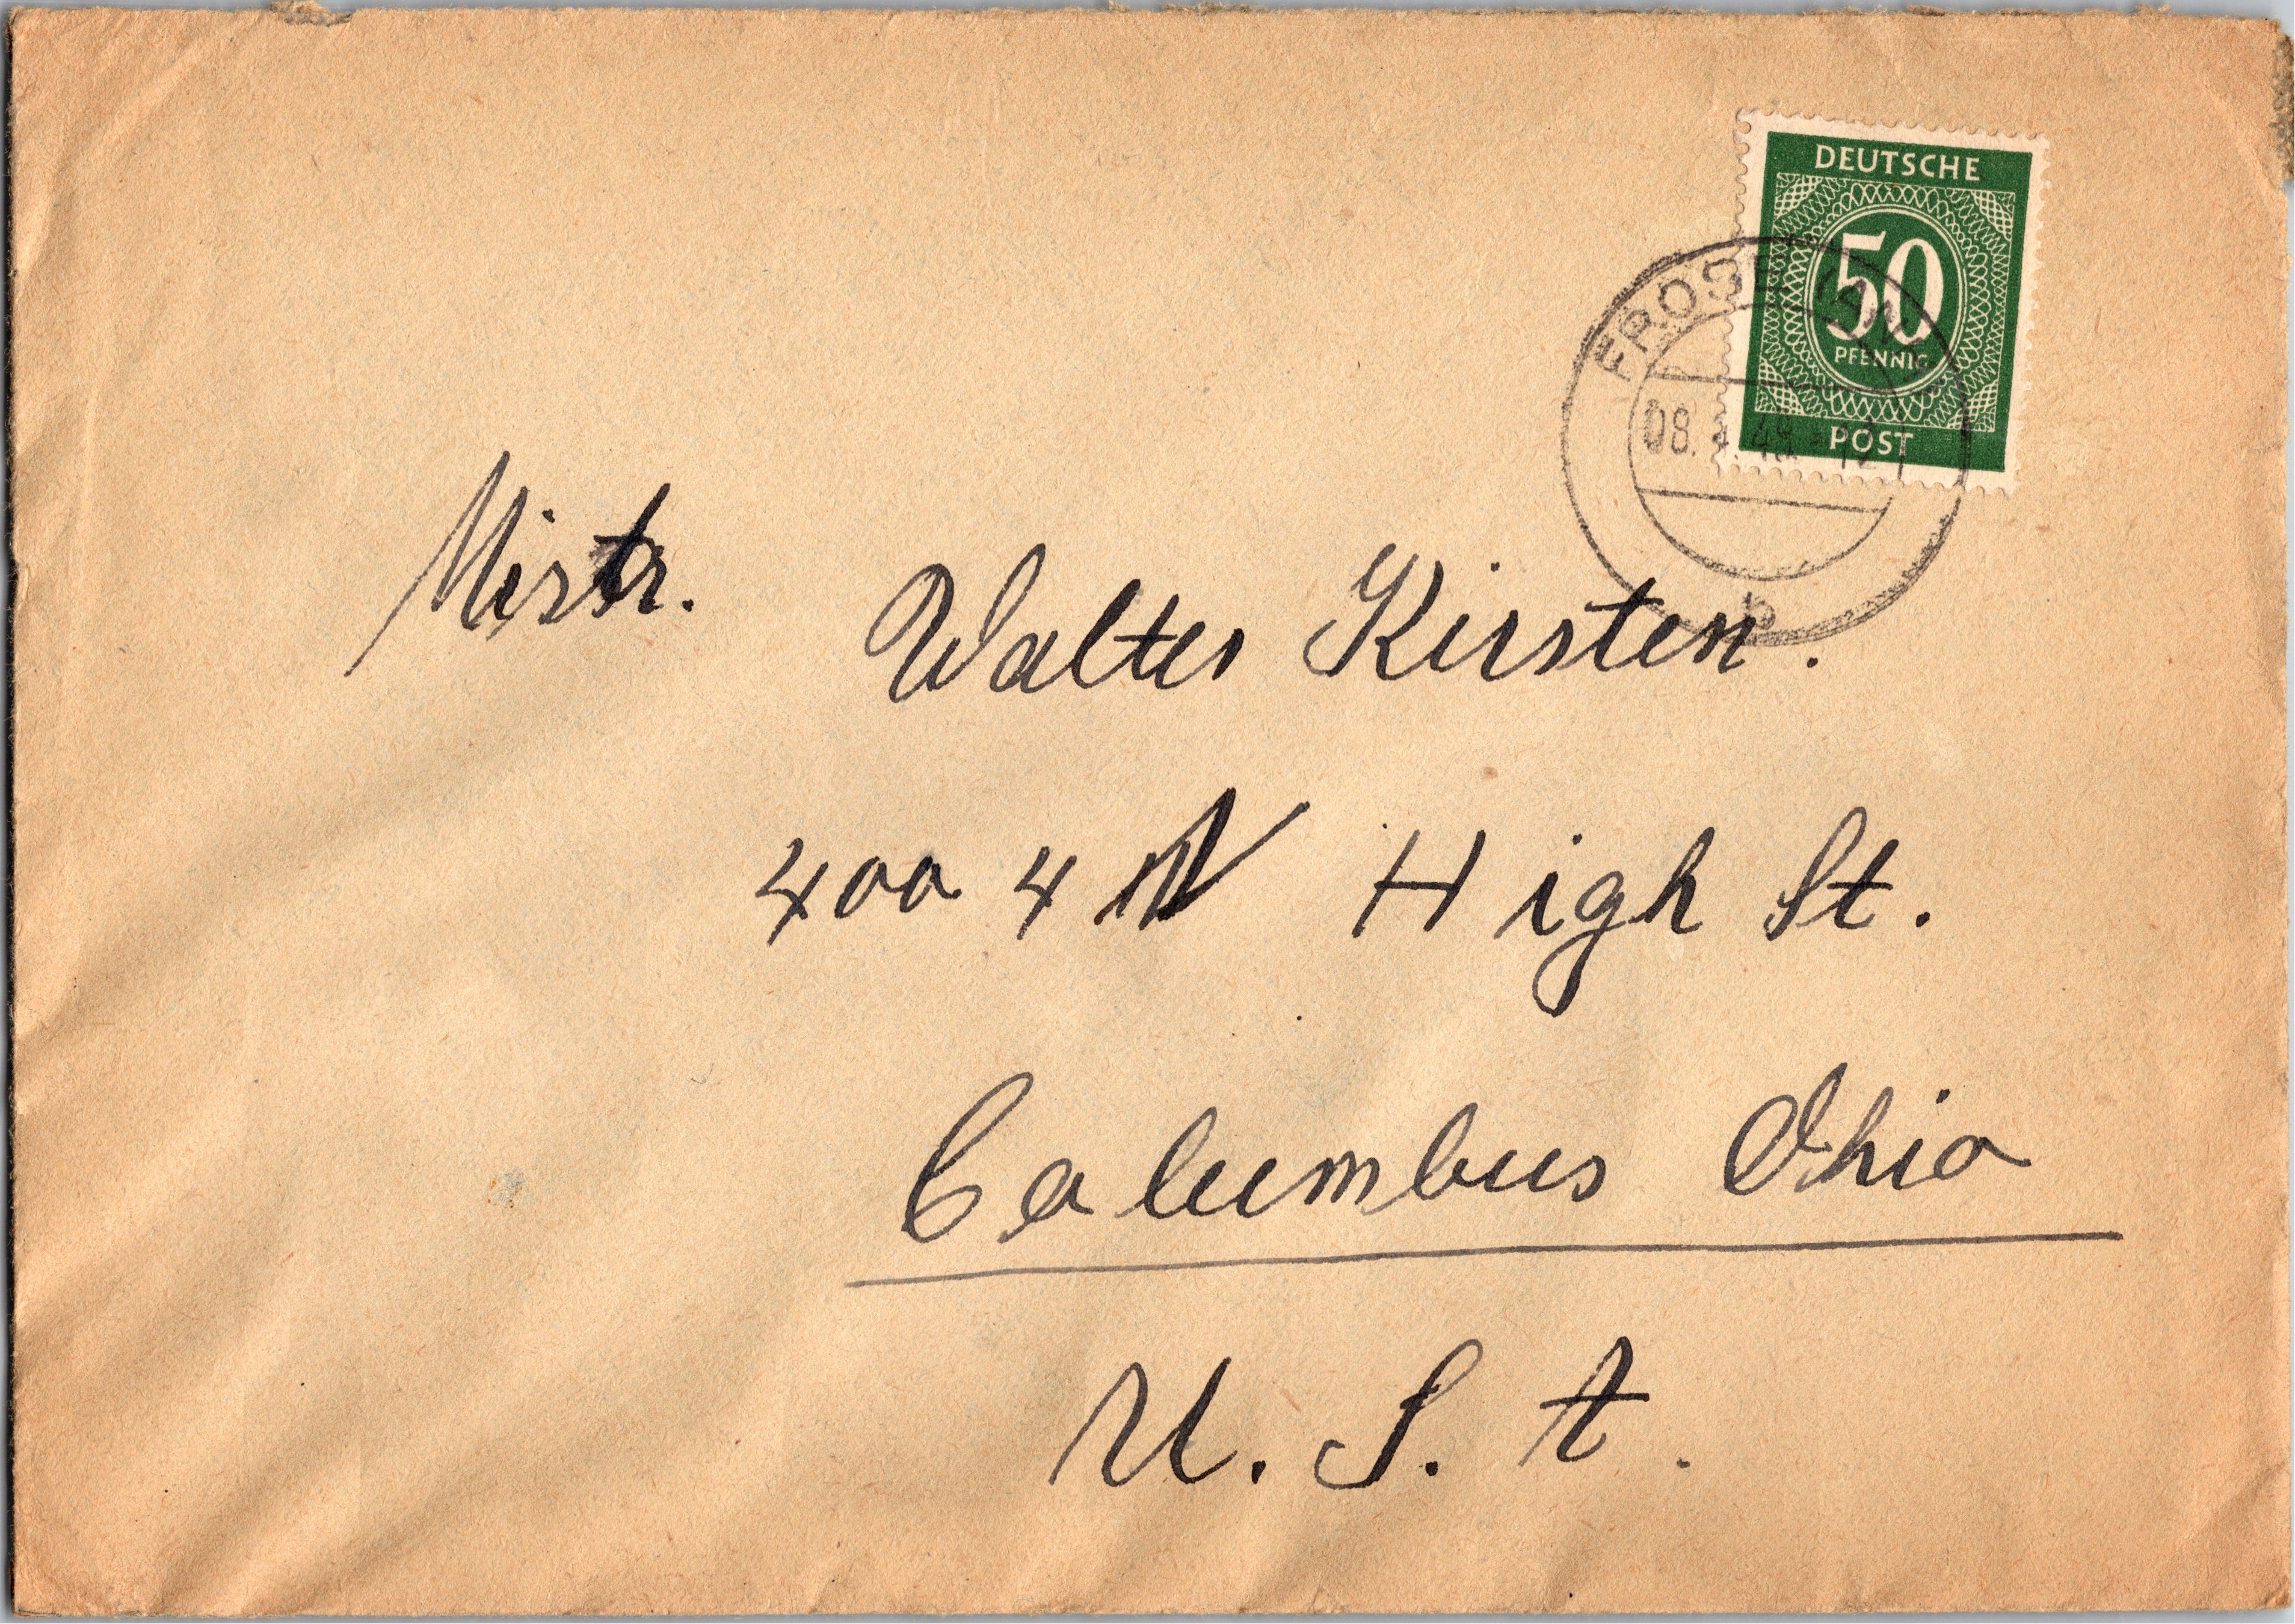 DEUTSCHE
50
PFENNIG
POST
FROSE (ANH
08. 48 12
b
Mistr.
Walter Kirsten.
400 4 N High St.
Columbus Ohio
U. S. A.